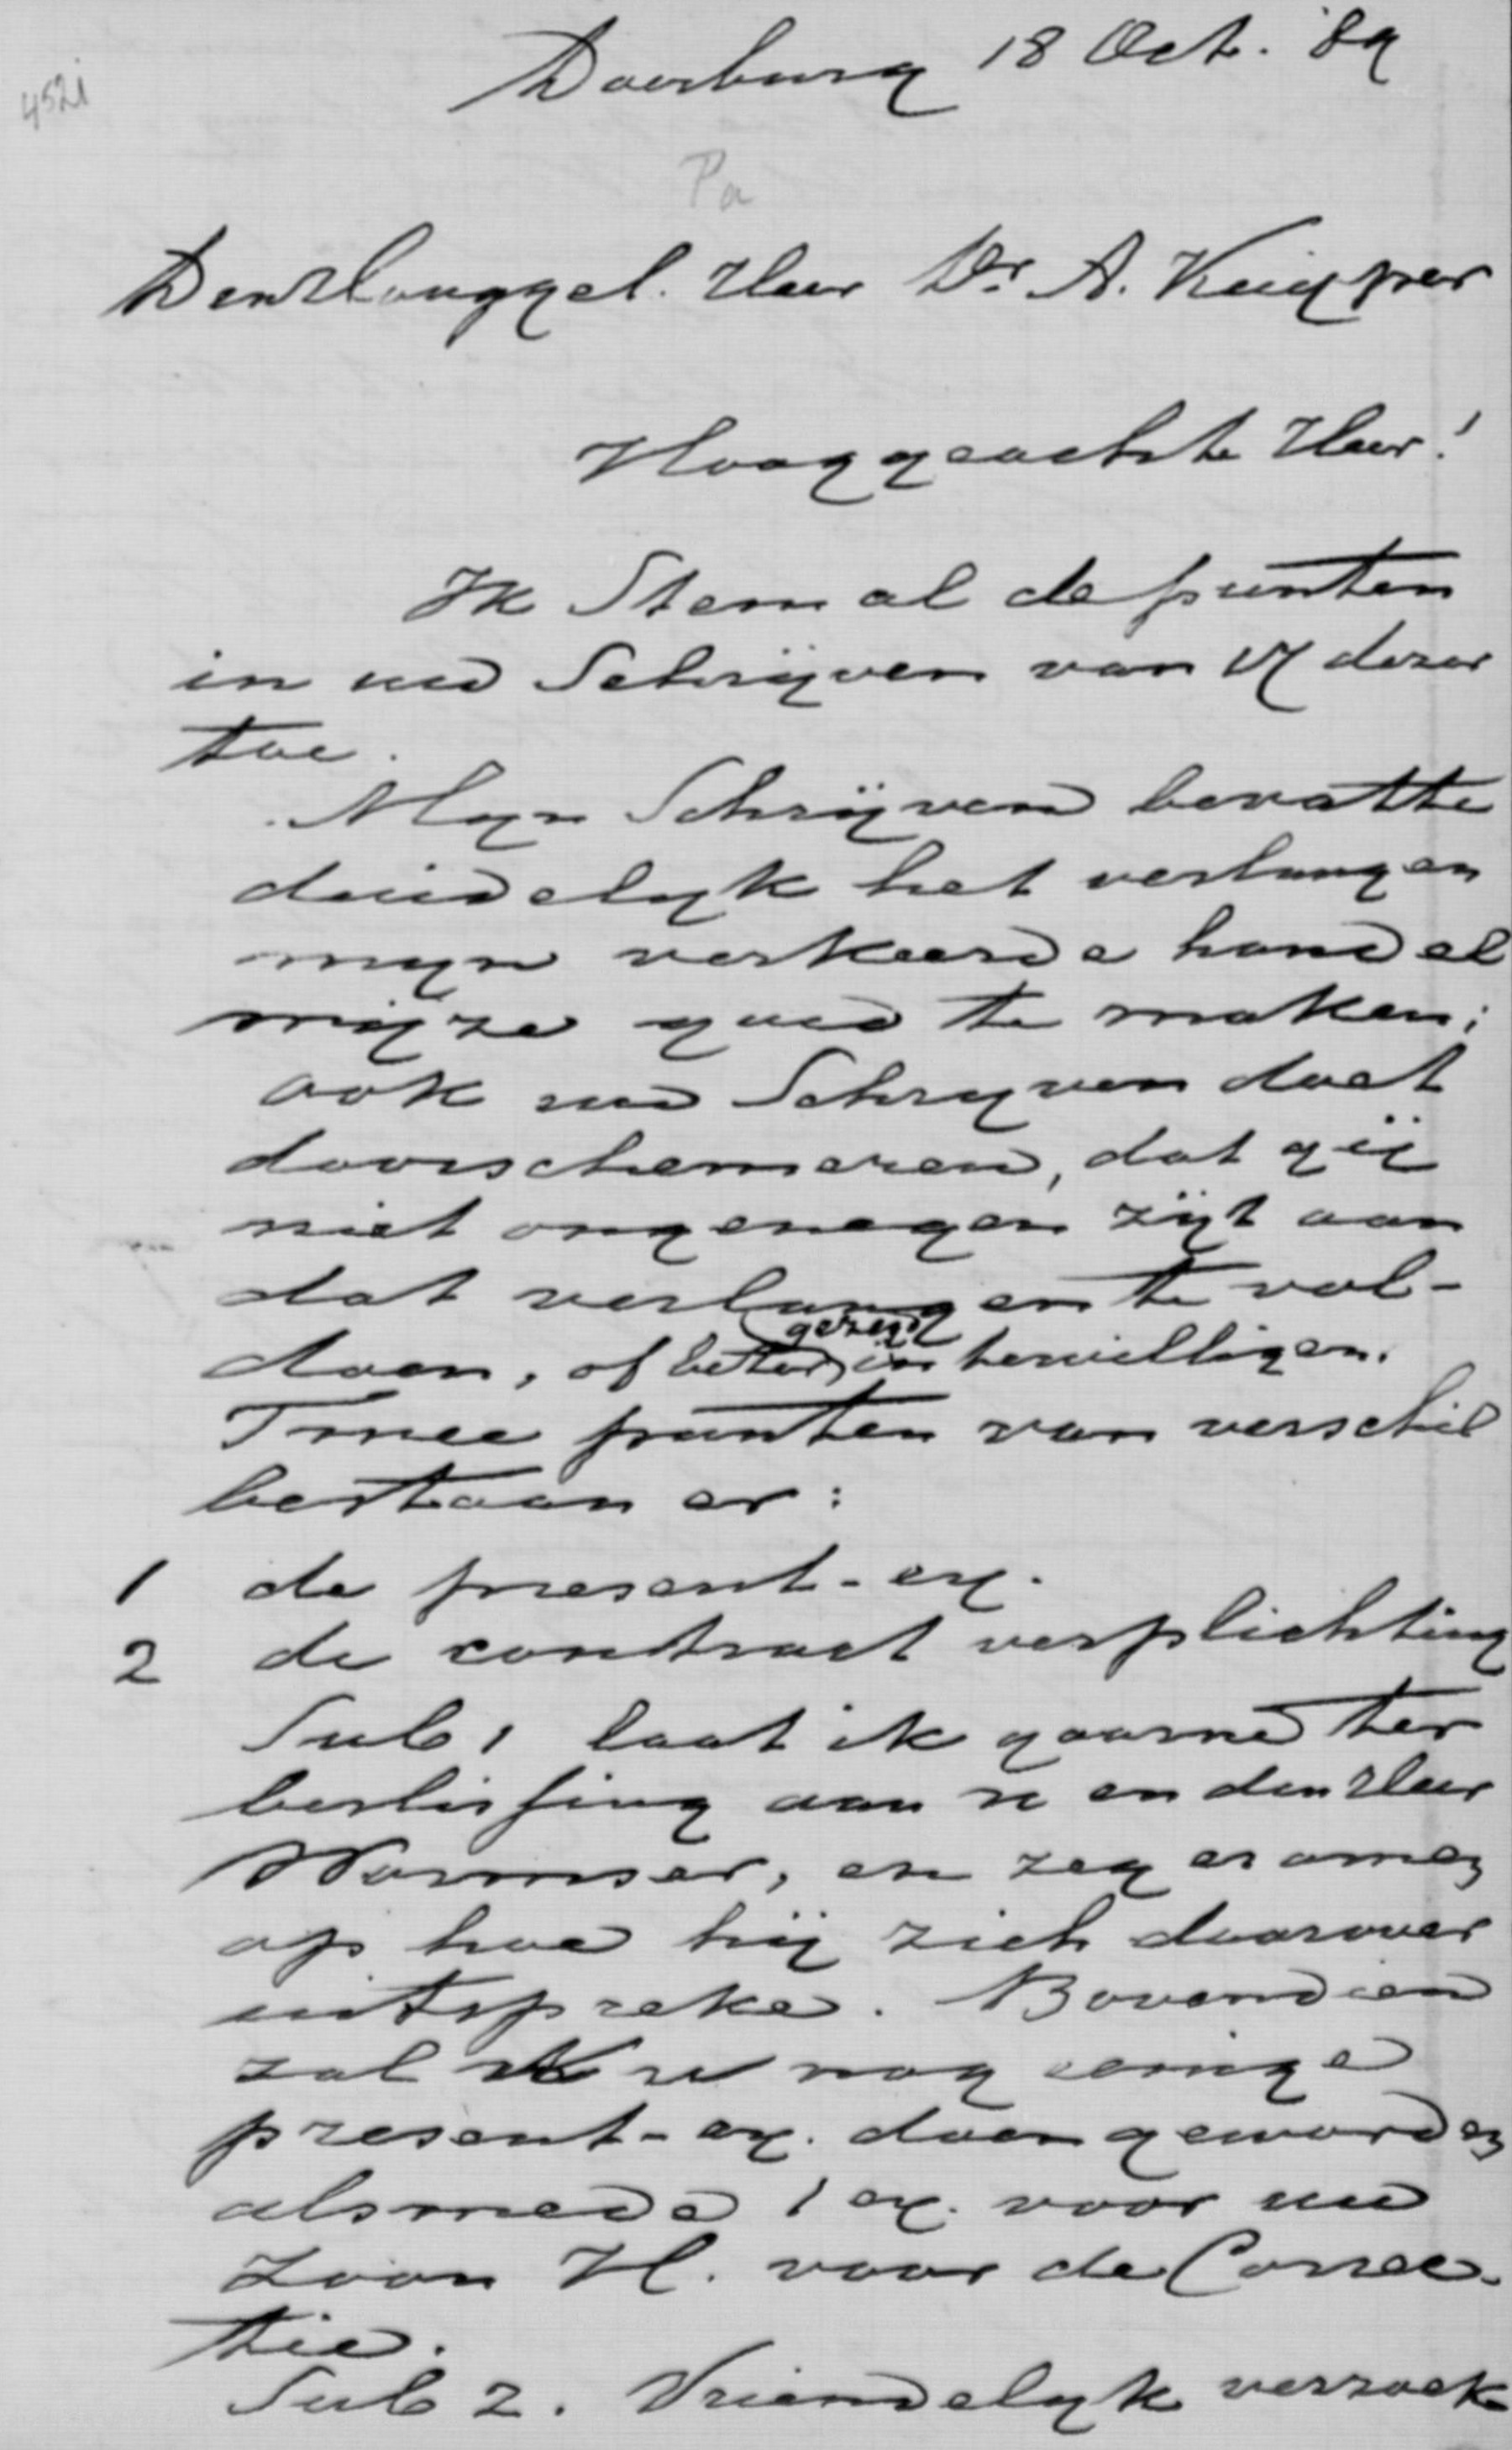 4521
Doesburg 18 Oct. '89
Pa
Den Hooggel. Heer Dr. A. Kuijper
Hooggeachte Heer!
Ik Stem al de punten
in uw Schrijven van 17 dezer
toe.
Myn Schrijven bevatte
duidelyk het verlangen
myn verkeerde handel
wijze goed te maken;
ook uw Schryven doet
doorschemeren, dat gij
niet ongenegen zijt aan
dat verlangen te vol-
doen, of beter gezegd in te willigen.
Twee punten van verschil
bestaan er:
1 de present-ex.
2 de contract verplichting
Sub 1 laat ik gaarne ter
beslissing aan u en den Heer
Wormser, en zeg er amen
op hoe hij zich daarover
uitspreke. Bovendien
zal ik u nog eenige
present-ex. doen geworden
alsmede 1 ex. voor uw
Zoon H. voor de Correc-
tie.
Sub 2. Vriendelyk verzoek